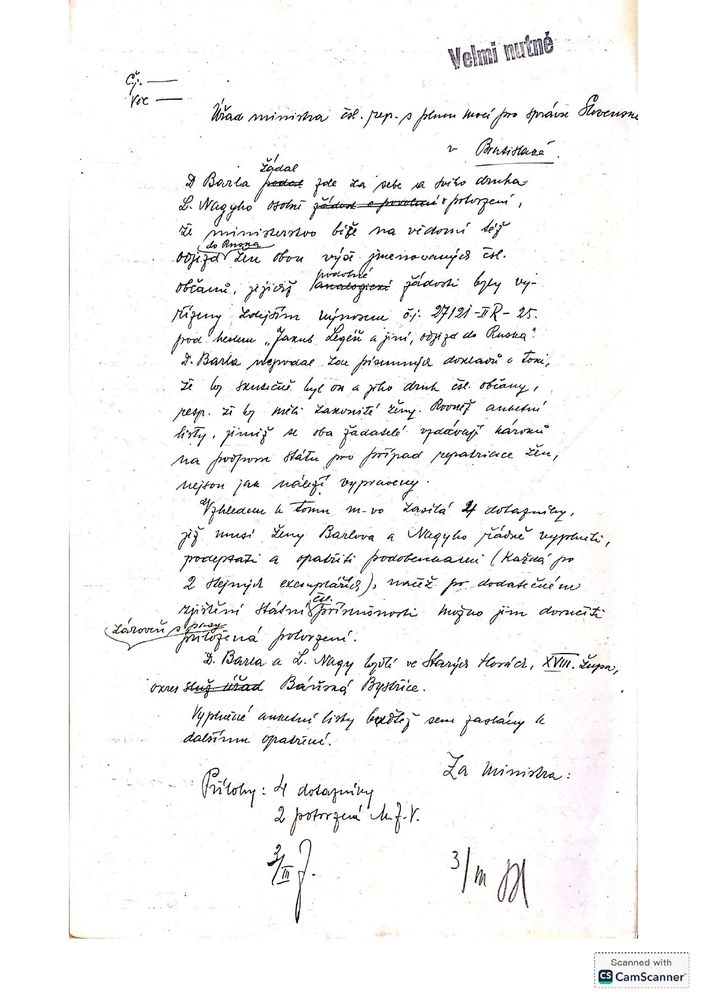 Velmi nutné
Čj. —
Věc —
Úřad ministra čsl. rep. s plnou mocí pro správu Slovenska
v Bratislavě.
žádal
D. Barla podal zde za sebe a svého druha
L. Nagyho osobně žádost o povolení o potvrzení,
že ministerstvo béře na vědomí též
do Ruska
odjezd žen obou výše jmenovaných čsl.
podobné
občanů, jejichž analogické žádosti byly vy-
řízeny zdejším výnosem čj. 27121-II R-25.
pod heslem „Jakub Legéň a jiní, odjezd do Ruska".
D. Barla nepodal zde písemných dokladů o tom,
že by skutečně byl on a jeho druh čsl. občany,
resp. že by měli zákonité ženy. Rovněž anketní
listy, jimiž se oba žadatelé vzdávají nároků
na podporu státu pro případ repatriace žen,
nejsou jak náleží vypraveny.
Vzhledem k tomu m-vo zasílá 4 dotazníky,
jež musí ženy Barlova a Nagyho řádně vyplniti,
podepsati a opatřiti podobenkami (každá po
2 stejných exemplářích), načež po dodatečném
čsl.
zjištění státní příslušnosti možno jim doručiti
zároveň s pasy
přiložená potvrzení.
D. Barla a L. Nagy bydlí ve Starých Horách, XVIII. župa,
okres služ. úřad Baňská Bystrice.
Vyplněné anketní listy buďtež sem zaslány k
dalšímu opatření.
Za ministra:
Přílohy: 4 dotazníky
2 potvrzená M.Z.V.
3/III
3/III
Scanned with
CS CamScanner